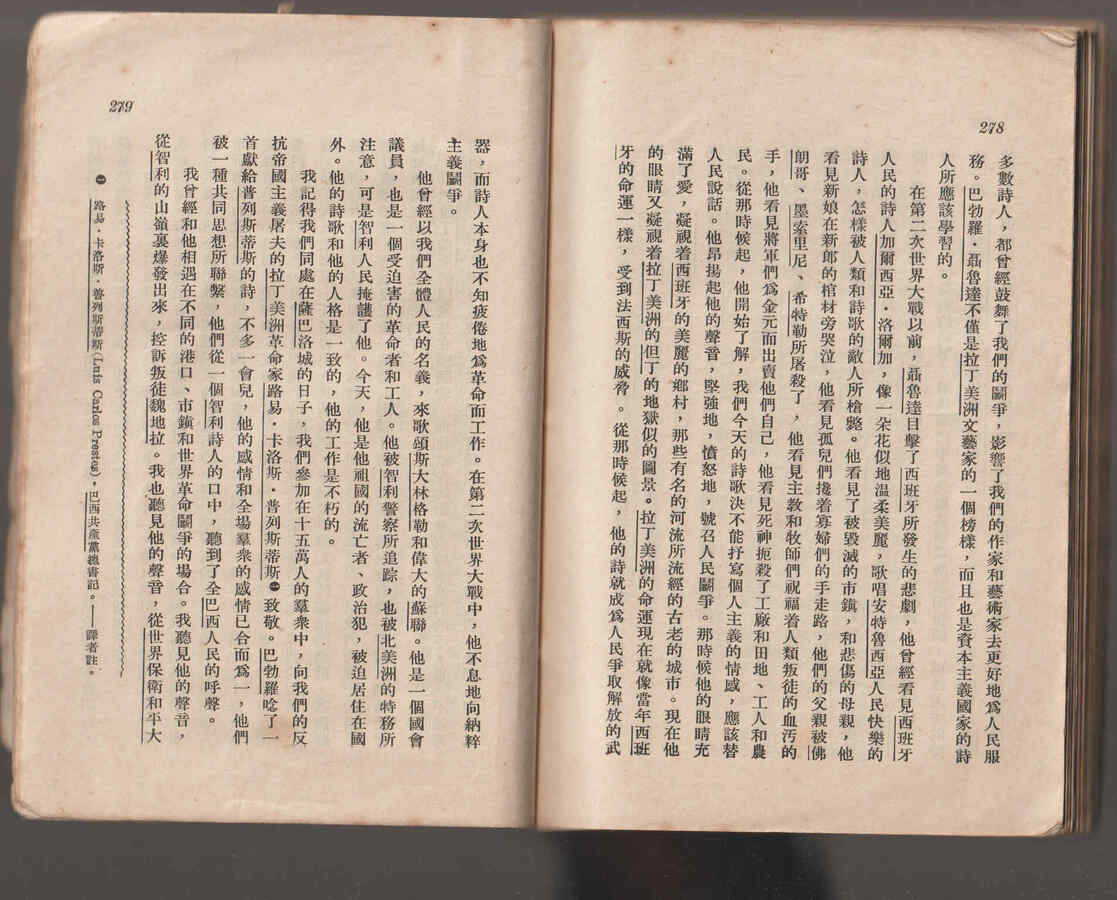 278
多數詩人，都曾經鼓舞了我們的鬭爭，影響了我們的作家和藝術家去更好地爲人民服
務。巴勃羅·聶魯達不僅是拉丁美洲文藝家的一個榜樣，而且也是資本主義國家的詩
人所應該學習的。
在第二次世界大戰以前，聶魯達目擊了西班牙所發生的悲劇，他曾經看見西班牙
人民的詩人加爾西亞·洛爾加，像一朵花似地温柔美麗，歌唱安特魯西亞人民快樂的
詩人，怎樣被人類和詩歌的敵人所槍斃。他看見了被毀滅的市鎭，和悲傷的母親，他
看見新娘在新郎的棺材旁哭泣，他看見孤兒們攙着寡婦們的手走路，他們的父親被佛
朗哥、墨索里尼、希特勒所屠殺了，他看見主敎和牧師們祝福着人類叛徒的血汚的
手，他看見將軍們爲金元而出賣他們自己，他看見死神扼殺了工廠和田地、工人和農
民。從那時候起，他開始了解，我們今天的詩歌決不能抒寫個人主義的情感，應該替
人民說話。他昂揚起他的聲音，堅強地，憤怒地，號召人民鬭爭。那時候他的眼睛充
滿了愛，凝視着西班牙的美麗的鄉村，那些有名的河流所流經的古老的城市。現在他
的眼睛又凝視着拉丁美洲的但丁的地獄似的圖景。拉丁美洲的命運現在就像當年西班
牙的命運一樣，受到法西斯的威脅。從那時候起，他的詩就成爲人民爭取解放的武
279
器，而詩人本身也不知疲倦地爲革命而工作。在第二次世界大戰中，他不息地向納粹
主義鬭爭。
他曾經以我們全體人民的名義，來歌頌斯大林格勒和偉大的蘇聯。他是一個國會
議員，也是一個受迫害的革命者和工人。他被智利警察所追踪，也被北美洲的特務所
注意，可是智利人民掩護了他。今天，他是他祖國的流亡者、政治犯，被迫居住在國
外。他的詩歌和他的人格是一致的，他的工作是不朽的。
我記得我們同處在薩巴洛城的日子，我們參加在十五萬人的羣衆中，向我們的反
抗帝國主義屠夫的拉丁美洲革命家路易·卡洛斯·普列斯蒂斯㊀致敬。巴勃羅唸了一
首獻給普列斯蒂斯的詩，不多一會兒，他的感情和全場羣衆的感情已合而爲一，他們
被一種共同思想所聯繫，他們從一個智利詩人的口中，聽到了全巴西人民的呼聲。
我曾經和他相遇在不同的港口、市鎭和世界革命鬭爭的場合。我聽見他的聲音，
從智利的山嶺裏爆發出來，控訴叛徒魏地拉。我也聽見他的聲音，從世界保衛和平大
㊀ 路易·卡洛斯·普列斯蒂斯(Luis Carlos Prestes)，巴西共產黨總書記。——譯者註。